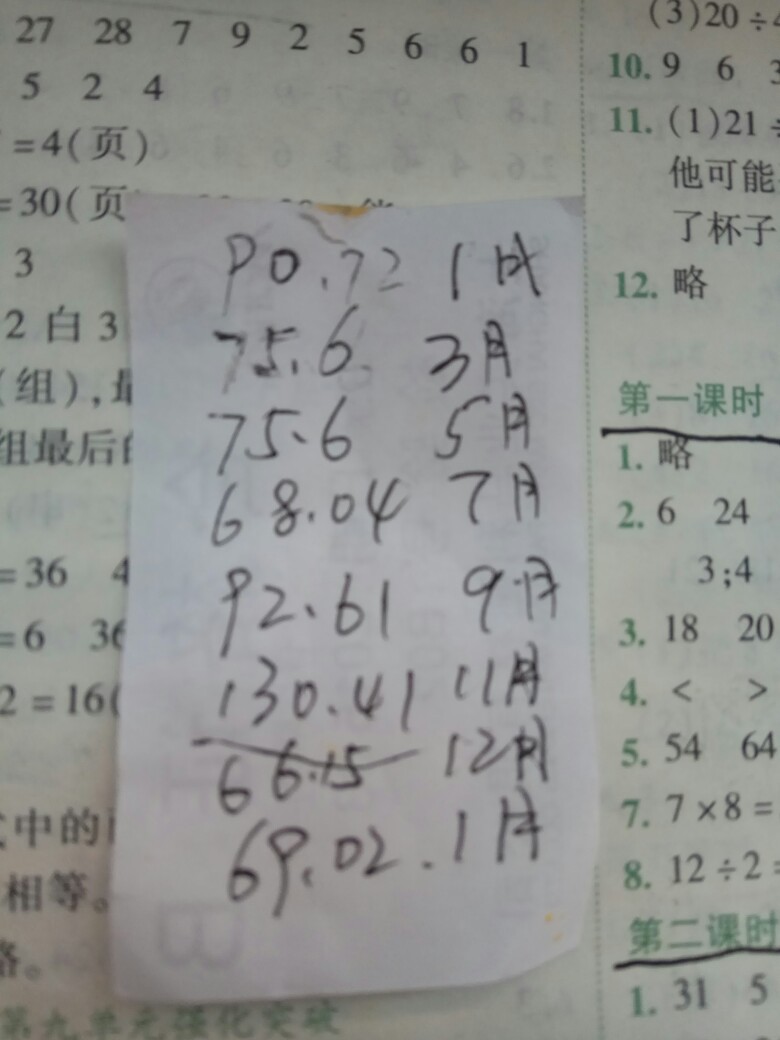 27 28 7 9 2 5 6 6 1
5 2 4
=4(页)
=30(页
3
2 白 3
(组),最
组最后的
=36 4
=6 36
2=16(
式中的
相等。
略。
第九单元强化突破
90.72 1月
75.6 3月
75.6 5月
68.04 7月
92.61 9月
130.41 11月
66.15 12月
69.02.1月
(3)20÷4
10. 9 6 3
11. (1)21÷
他可能
了杯子
12. 略
第一课时
1. 略
2. 6 24
3;4
3. 18 20
4. < >
5. 54 64
7. 7×8=
8. 12÷2=
第二课时
1. 31 5